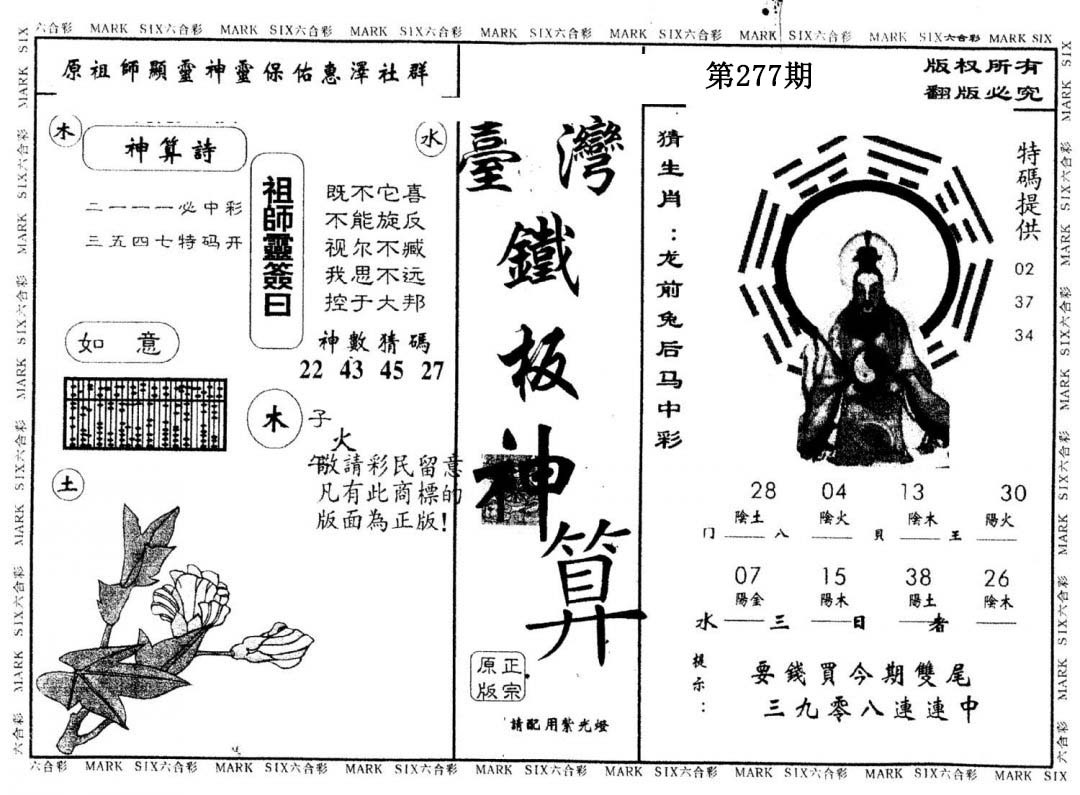 六合彩 MARK SIX六合彩 MARK SIX六合彩 MARK SIX六合彩 MARK SIX六合彩 MARK SIX六合彩 MARK SIX六合彩 MARK SIX六合彩 MARK SIX
原祖師顯靈神靈保佑惠澤社群
第277期
版权所有
翻版必究
木
神算詩
水
二一一一必中彩
三五四七特码开
祖師靈簽曰
既不它喜
不能旋反
视尔不臧
我思不远
控于大邦
神數猜碼
22 43 45 27
如意
木
子
火
午
敬請彩民留意
凡有此商標的
版面為正版!
土
臺灣
鐵
板
神
算
正宗
原版
請配用紫光燈
猜生肖:龙前兔后马中彩
特碼提供
02
37
34
28 04 13 30
陰土 陰火 陰木 陽火
门 八 貝 王
07 15 38 26
陽金 陽木 陽土 陰木
水 三 日 者
提示:
要錢買今期雙尾
三九零八連連中
六合彩 MARK SIX六合彩 MARK SIX六合彩 MARK SIX六合彩 MARK SIX六合彩 MARK SIX六合彩 MARK SIX六合彩 MARK SIX六合彩 MARK SIX